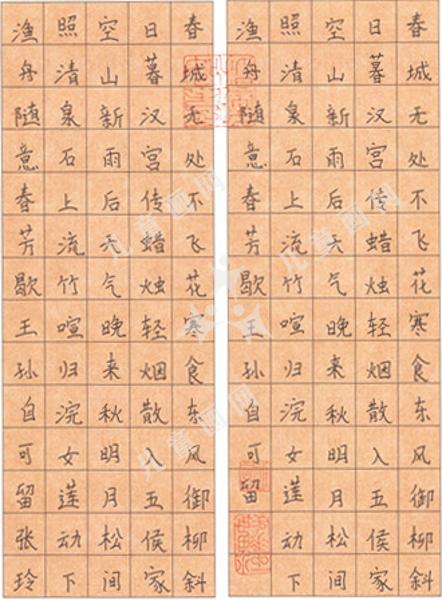 春城无处不飞花寒食东风御柳斜
日暮汉宫传蜡烛轻烟散入五侯家
空山新雨后天气晚来秋明月松间
照清泉石上流竹喧归浣女莲动下
渔舟随意春芳歇王孙自可留张玲
春城无处不飞花寒食东风御柳斜
日暮汉宫传蜡烛轻烟散入五侯家
空山新雨后天气晚来秋明月松间
照清泉石上流竹喧归浣女莲动下
渔舟随意春芳歇王孙自可留
儿童画网
儿童画网
儿童画网